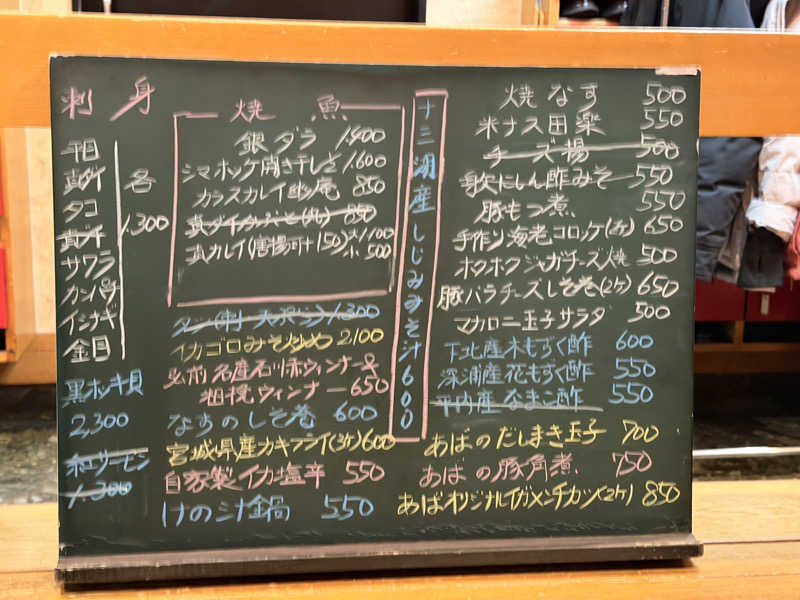 刺身
平目
真ダイ
タコ
真ゾイ
サワラ
カンパチ
イシナギ
金目
各
1.300
黒ホッキ貝
2,300
サーモン
1.300
焼魚
銀ダラ 1.400
シマホッケ開き干し 1.600
カラスカレイ幽庵 850
850
真カレイ(唐揚 150) 大1.100
小500
十三湖産しじみみそ汁600
1.300
イカゴロみそ炒め 2100
弘前名産石川赤ウィンナー&
粗挽ウィンナー 650
なすのしそ巻 600
宮城県産カキフライ(3ケ)600
自家製イカ塩辛 550
けの汁鍋 550
焼なす 500
米ナス田楽 550
チーズ揚 500
にしん酢みそ 550
豚もつ煮 550
手作り海老コロッケ(2ケ) 650
ホクホクジャガチーズ焼 500
豚バラチーズしそ巻(2ケ) 650
マカロニ玉子サラダ 500
下北産木もずく酢 600
深浦産花もずく酢 550
平内産なまこ酢 550
あばのだしまき玉子 700
あばの豚角煮 750
あばオリジナルイガメンチカツ(2ケ) 850